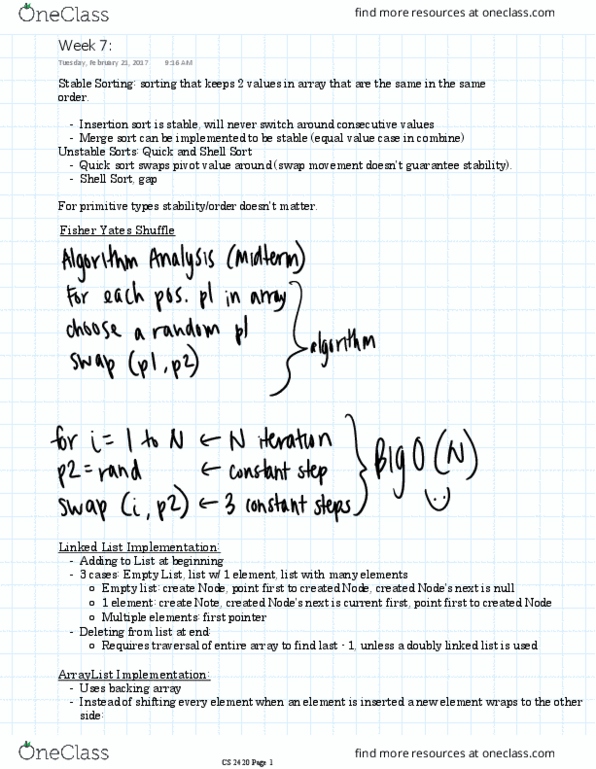 OneClass
find more resources at oneclass.com
Week 7:
Tuesday, February 21, 2017 9:16 AM
Stable Sorting: sorting that keeps 2 values in array that are the same in the same
order.
- Insertion sort is stable, will never switch around consecutive values
- Merge sort can be implemented to be stable (equal value case in combine)
Unstable Sorts: Quick and Shell Sort
- Quick sort swaps pivot value around (swap movement doesn't guarantee stability).
- Shell Sort, gap
For primitive types stability/order doesn't matter.
Fisher Yates Shuffle
Algorithm Analysis (Midterm)
For each pos. p1 in array
choose a random p1
swap (p1, p2)
algorithm
for i = 1 to N ← N iteration
p2 = rand ← constant step
swap (i, p2) ← 3 constant steps
Big O (N)
Linked List Implementation:
- Adding to List at beginning
- 3 cases: Empty List, list w/ 1 element, list with many elements
o Empty list: create Node, point first to created Node, created Node's next is null
o 1 element: create Note, created Node's next is current first, point first to created Node
o Multiple elements: first pointer
- Deleting from list at end:
o Requires traversal of entire array to find last - 1, unless a doubly linked list is used
ArrayList Implementation:
- Uses backing array
- Instead of shifting every element when an element is inserted a new element wraps to the other
side:
CS 2420 Page 1
OneClass
find more resources at oneclass.com